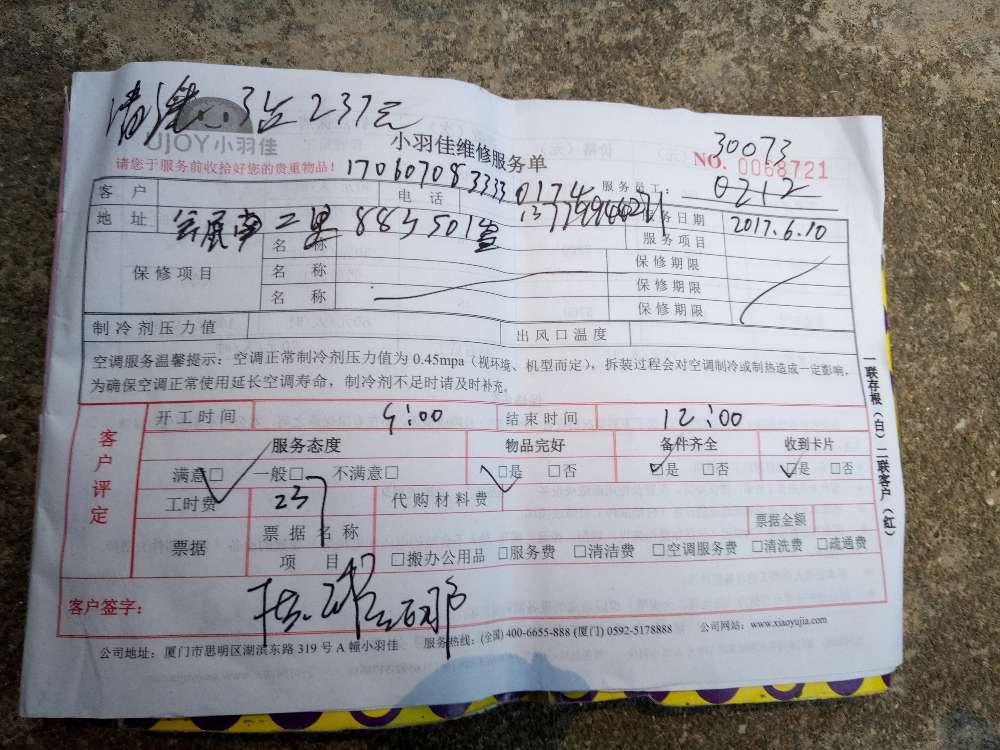 清洗 3台 237元
UJOY小羽佳
小羽佳维修服务单
30073
NO. 0068721
请您于服务前收拾好您的贵重物品!
1706070833330174
客户 电话 服务员工: 0212
地址 会展南二里 88号501室 服务日期 2017.6.10
名称 服务项目
保修项目 名称 保修期限
保修期限
名称 保修期限
制冷剂压力值 出风口温度
空调服务温馨提示:空调正常制冷剂压力值为 0.45mpa(视环境、机型而定),拆装过程会对空调制冷或制热造成一定影响,
为确保空调正常使用延长空调寿命,制冷剂不足时请及时补充。
客户评定
开工时间 9:00 结束时间 12:00
服务态度 物品完好 备件齐全 收到卡片
满意□ 一般□ 不满意□ □是 □否 □是 □否 □是 □否
工时费 237 代购材料费
票据 票据名称 票据金额
项目 □搬办公用品 □服务费 □清洁费 □空调服务费 □清洗费 □疏通费
客户签字:
公司地址:厦门市思明区湖滨东路 319 号 A 幢小羽佳 服务热线:(全国) 400-6655-888 (厦门) 0592-5178888 公司网站:www.xiaoyujia.com
一联存根(白)二联客户(红)